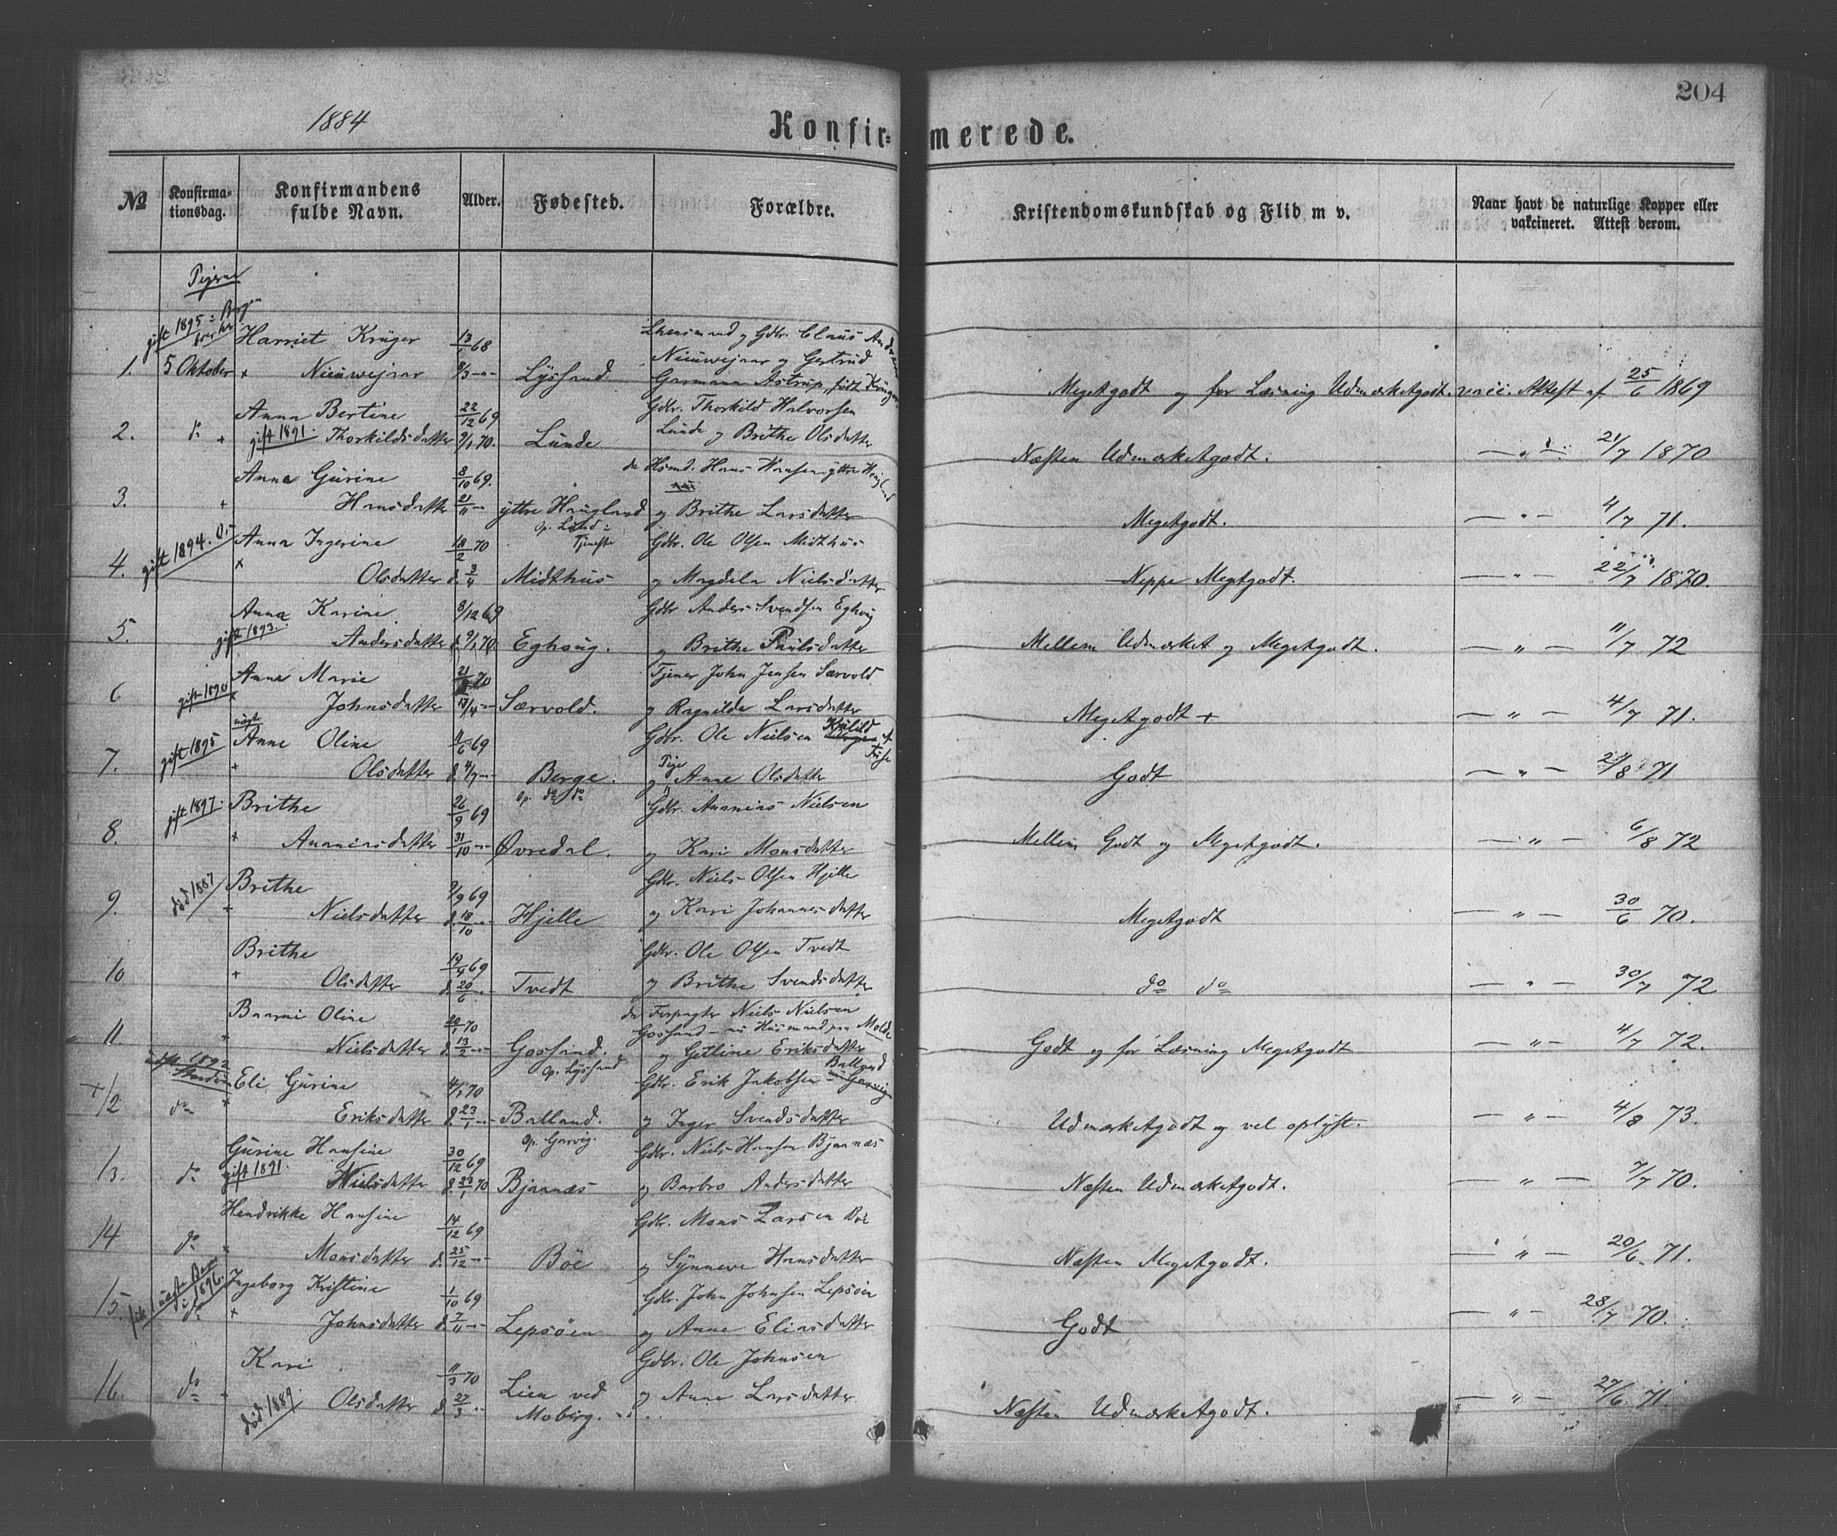 204
1884
Konfirmerede.
№ Konfirmationsdag. Konfirmandens fulde Navn. Alder. Fødested. Forældre. Kristendomskundskab og Flid m v. Naar havt de naturlige Kopper eller vakcineret. Attest derom.
Pigerne
gift 1895 Harriet Krüger 13/1 68 Lhensmand og Gdbr. Claus
Nieuwejaar og Gertrud
1. 5 Oktober + Nieuwejaar 9/3 -"- Lysfand. Garmann Astrup født Krüger MegetGodt og for Læsning UdmærketGodt. vacc. Attest af 25/6 1869
Anna Bertine 22/12 69 Gdbr. Thorkild Halvorsen
2. do + gift 1891. Thorkildsdatter 9/1 70. Lunde Lunde og Brithe Olsdatter Næsten UdmærketGodt. — " — 21/7 1870
Anna Gurine 8/10 69. Hans Hansen yttre Haugland
3. + Hansdatter 21/11 -"- yttre Haugland og Brithe Larsdatter MegetGodt. — " — 4/7 71.
gift 1894. Anna Ingerine 18/2 70 Gdbr. Ole Olsen Midthus
4. + Olsdatter d. 3/4 Midthus og Magdela Nielsdatter Neppe MegetGodt. — " — 22/7 1870.
Anna Karine 8/12 69 Gdbr. Anders Svendsen Eghaug
5. gift 1893. Andersdatter d. 9/1 70 Eghaug. og Brithe Paulsdatter Mellem Udmærket og MegetGodt. — " — 11/7 72
Anna Marie 21/ 70 Tjener John Jensen Særvold
6 gift 1890 + Johnsdatter 17/4 -"- Særvold. og Ragnilde Larsdatter MegetGodt + — " — 4/7 71.
gift 1895 Anne Oline 11/6 69 Gdbr. Ole Nielsen
7. + Olsdatter d. 4/7 -"- Berge. og Pige Anne Olsdatter Godt — " — 71
gift 1897. Brithe 26/9 69 Gdbr. Ananias Nielsen
8. + Ananiasdatter 31/10 -"- Øvredal. og Kari Monsdatter Mellem Godt og MegetGodt. — " — 6/8 72
død 1887 Brithe 9/9 69 Gdbr. Niels Olsen Hjelle
9. + Nielsdatter d. 18/10 -"- Hjelle og Kari Johannesdatter MegetGodt — " — 30/6 70.
Brithe 19/4 69 Gdbr. Ole Olsen Tvedt
10 + Olsdatter d. 20/6 -"- Tvedt og Brithe Svendsdatter do do — " — 30/7 72
Oline 20/1 70 Forpagter Niels Nielsen
Gossand - nu Husmand paa Molde
11 + Nielsdatter d. 13/2 -"- Gossand. og Gitline Eriksdatter Godt og for Læsning MegetGodt — " — 4/7 72.
1892 Eli Gurine 4/1 70 op. Lyssand Gdbr. Erik Jakobsen Balland - Garvig
+12 do + Eriksdatter d. 23/1 Balland. og Inger Svendsdatter UdmærketGodt og vel oplyst. — " — 4/8 73.
Gurine Hansine 30/12 69 op. Garvig. Gdbr. Niels Hansen Bjørnæs
13. do gift 1891. Nielsdatter d. 23/1 70 Bjørnæs og Barbro Andersdatter Næsten UdmærketGodt. — " — 7/7 70.
Hendrikke Hansine 14/12 69 Gdbr. Mons Larsen Bøe
14 do Monsdatter d. 25/12 -"- Bøe og Synneve Hansdatter Næsten MegetGodt. — " — 20/6 71.
1896. Ingeborg Kristine 1/10 69 Gdbr. John Johnsen Lepsøen
15. do + Johnsdatter d. 7/11 -"- Lepsøen og Anne Eliasdatter Godt — " — 28/7 70.
Kari 11/3 70 Gdbr. Ole Johnsen
16. do død 1889. Olsdatter d. 27/3 -"- Lien ved og Anne Larsdatter Næsten UdmærketGodt. — " — 27/6 71.
Moberg.